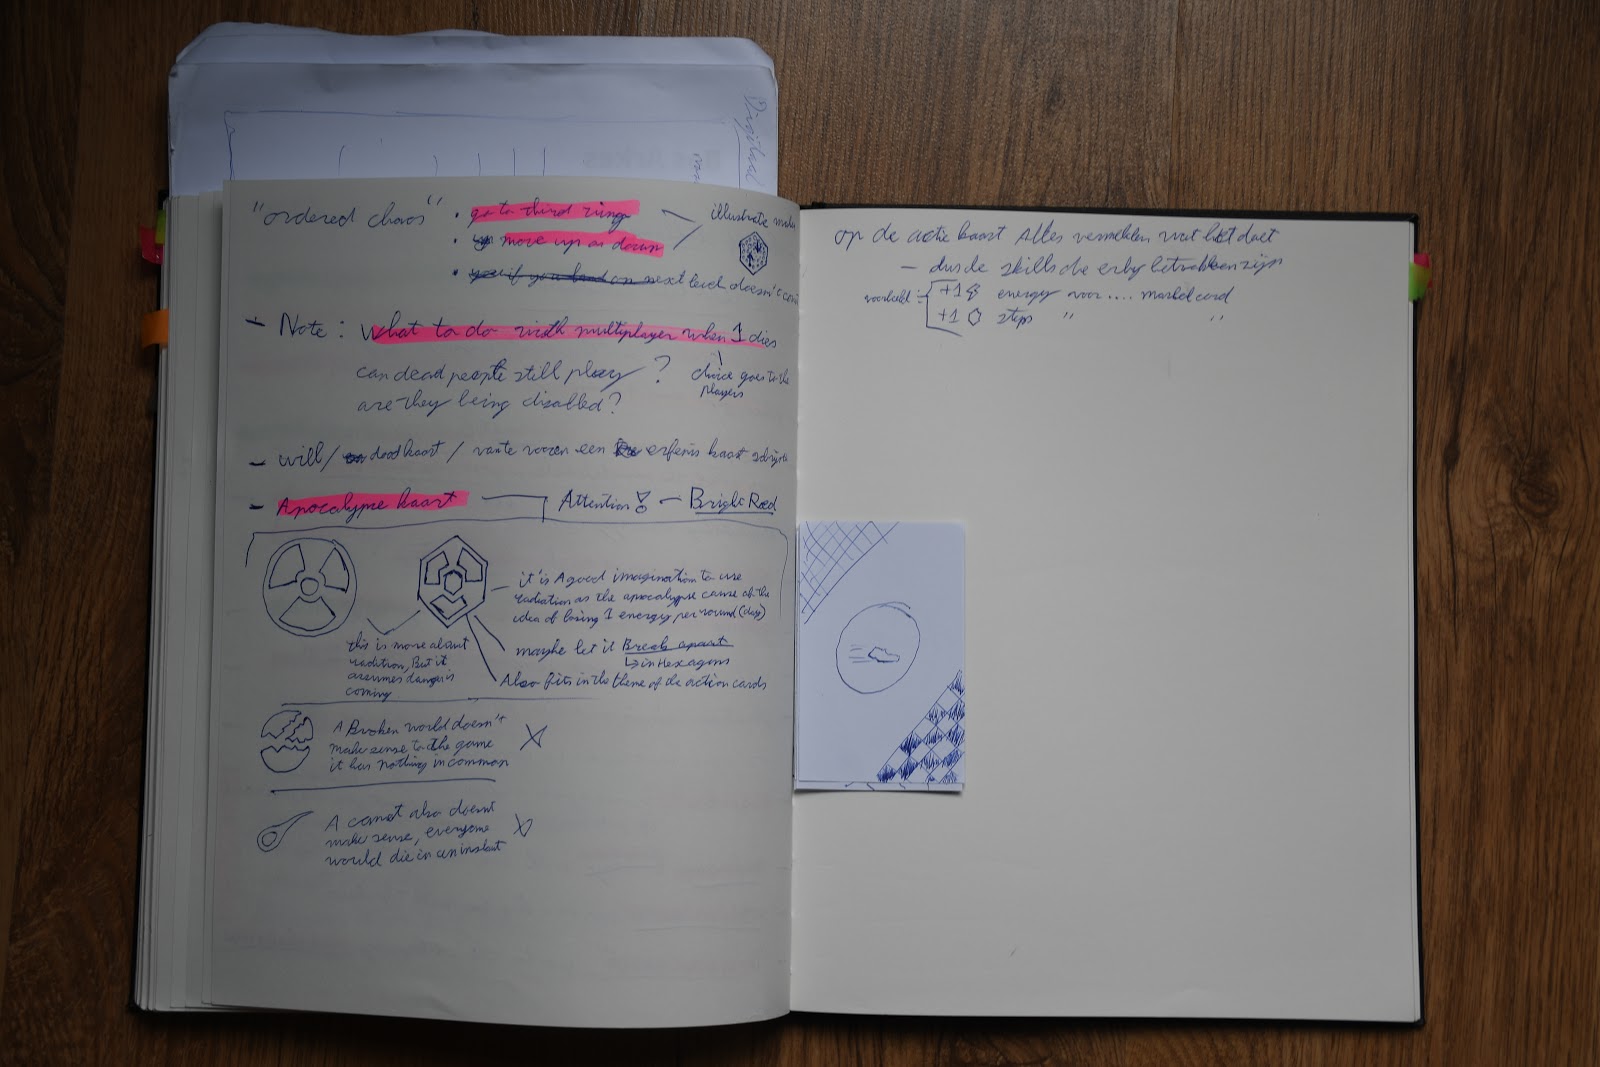 Digitaal
"ordered chaos"
• go to third ring
• move up or down
illustrate
• you if you land on next level doesn't
- Note: What to do with multiplayer when 1 dies
can dead people still play?
are they being disabled?
choice goes to the
players
- will / doodkaart / van te voren een erfenis kaart
- Apocalypse kaart
Attention! - Bright Red
it's A good imagination to use
radiation as the apocalypse cause of the
idea of losing 1 energy per round (day)
this is more about
radition, But it
assumes danger is
coming
maybe let it Break apart
↳ in Hexagons
Also fits in the theme of the action cards
A Broken world doesn't
make sense to the game
it has nothing in common
A comet also doesnt
make sense, everyone
would die in an instant
op de actie kaart Alles vermelden wat het doet
- dus de skills die erbij betrokken zijn
voorbeeld: +1 energy voor .... market card
+1 steps " "